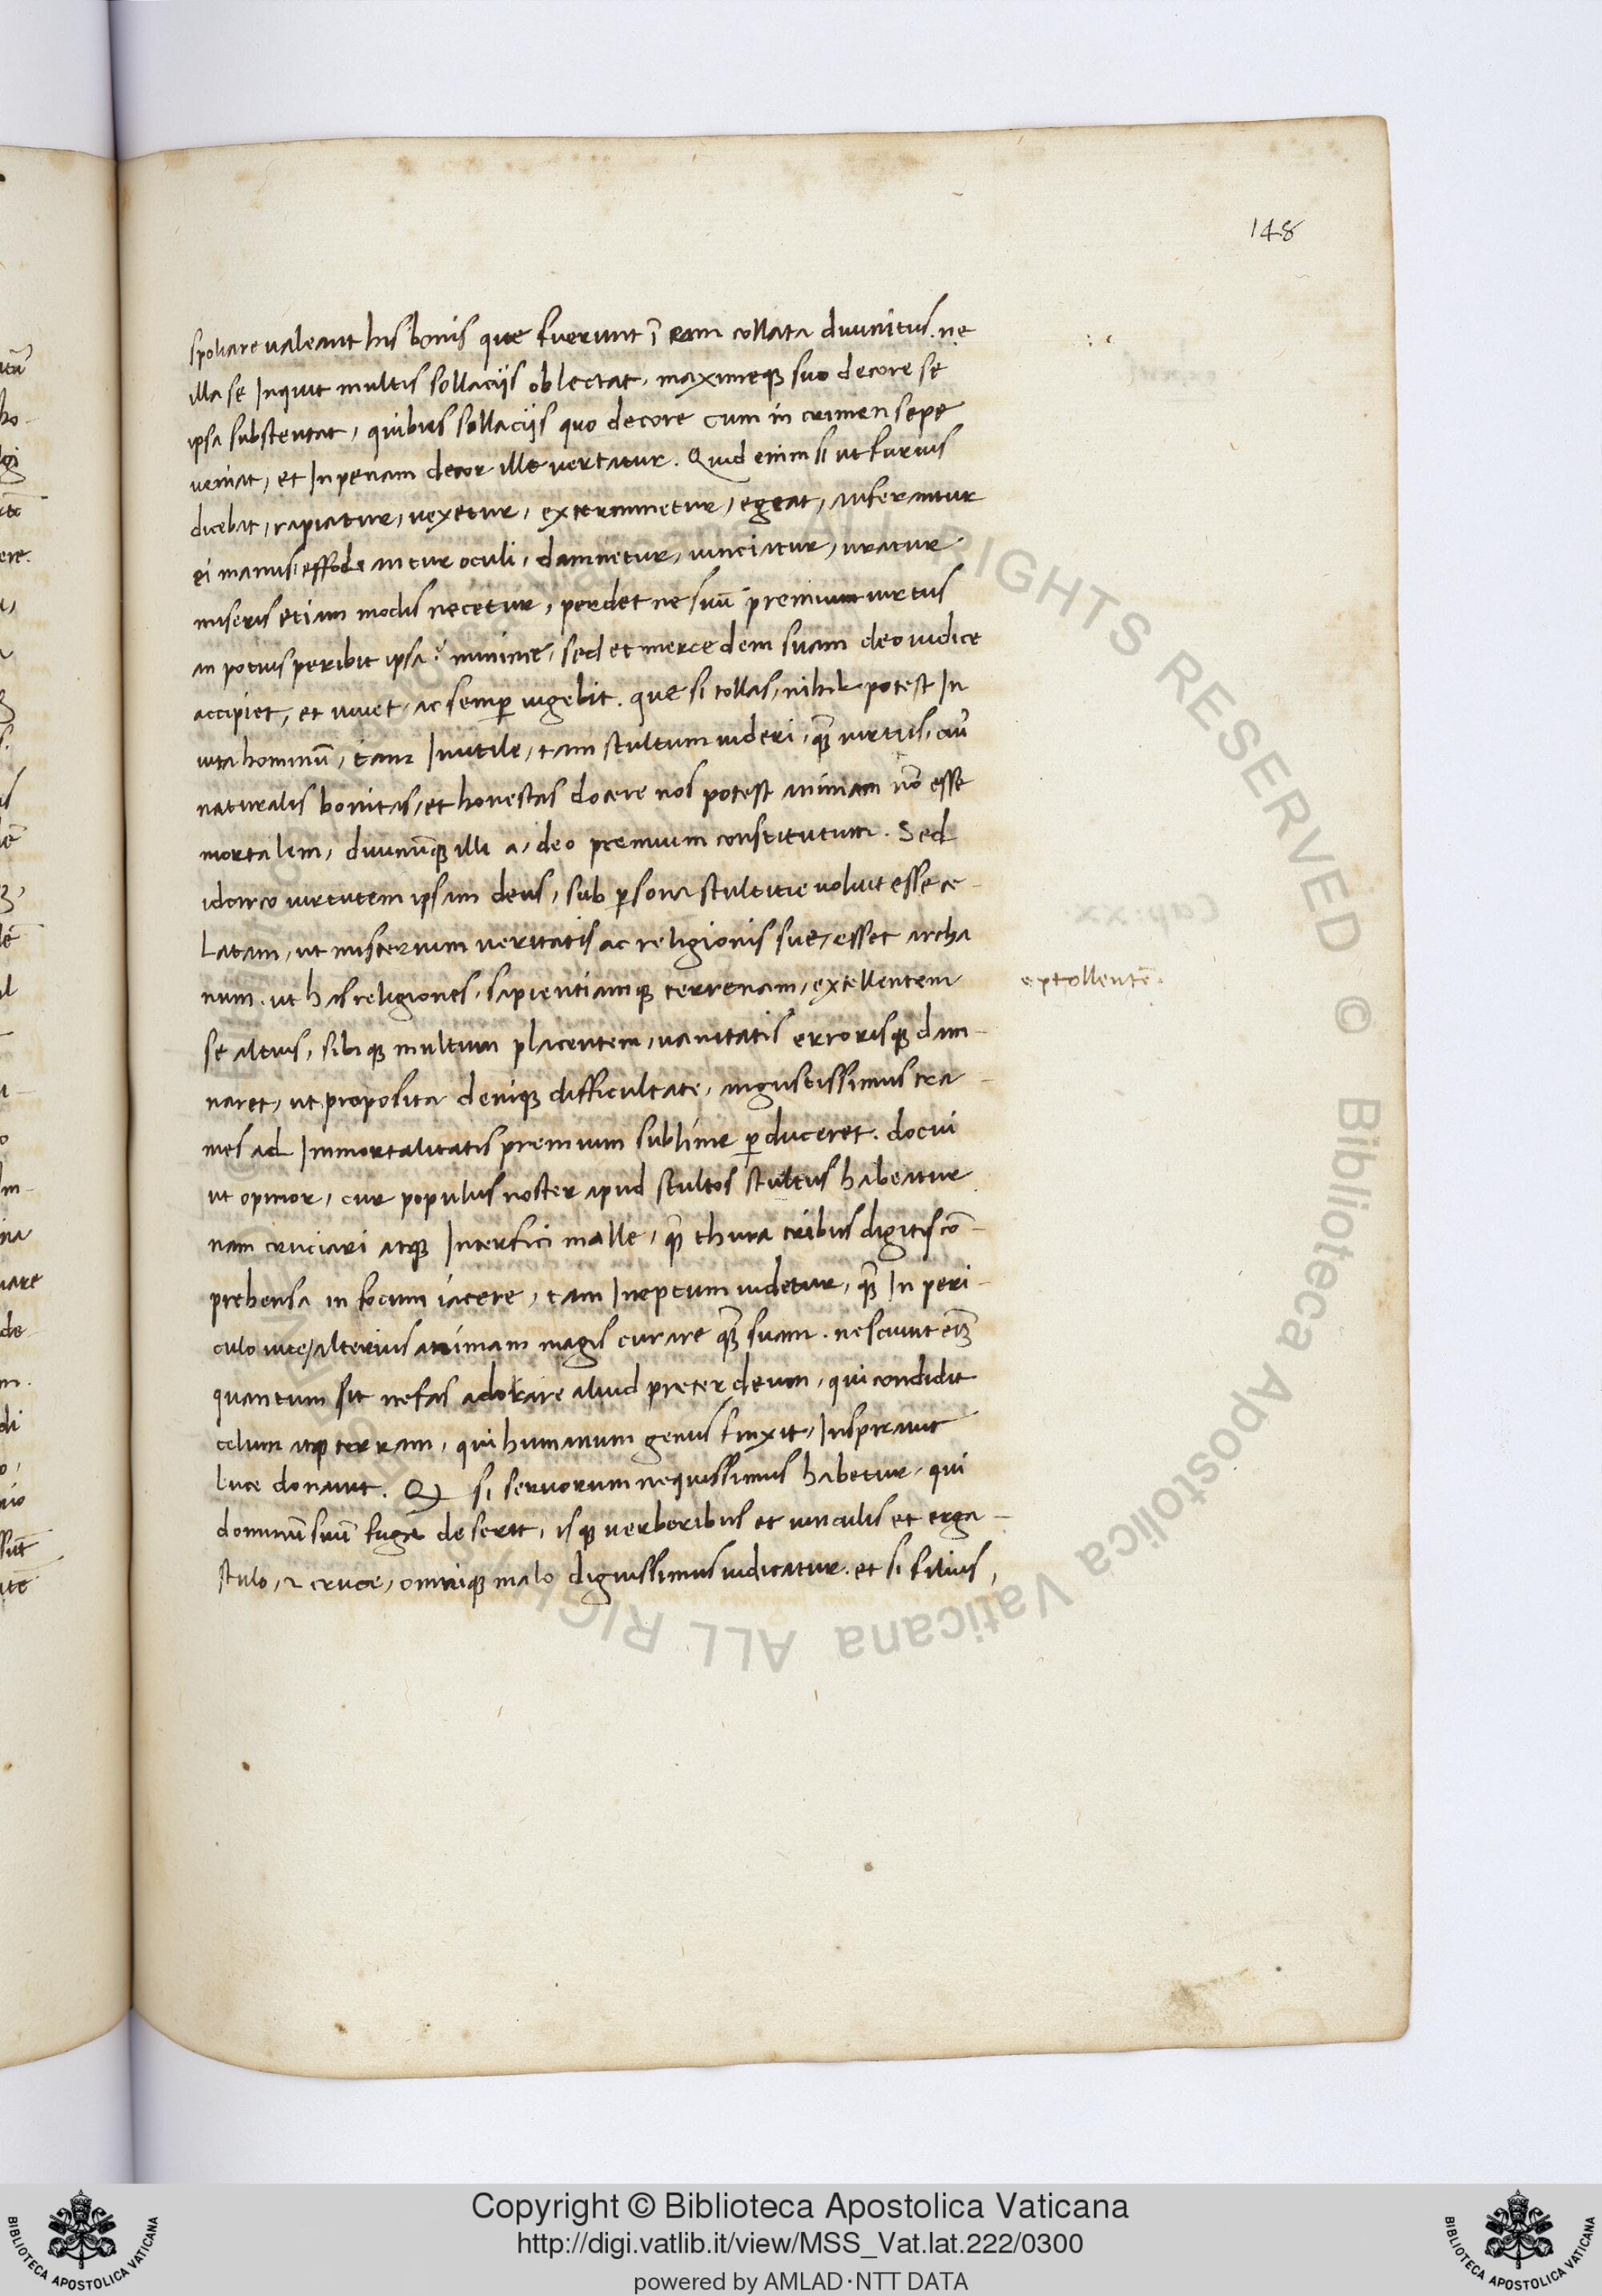 148
spoliare valeant his bonis que fuerunt ĩ eam collata divinitus. ne
illa se Inquit multis sollaciis oblectat, maximeqꝫ suo decore se
ipsa substentat, quibus sollaciis quo decore cum in crimen sepe
veniat, et In penam decor ille vertatur. Quid enim si ut furius
dicebat, rapiatur, vexetur, exterminetur, egeat, auferantur
ei manus, effodeantur oculi, damnetur, vinciatur, uratur
miseris etiam modis necetur, perdet ne suũ premium virtus
an potius peribit ipsa? minime, sed et mercedem suam deo iudice
accipiet, et vivet, ac semꝑ vigebit. que si tollas, nihil potest In
vita hominũ, tam Inutile, tam stultum videri, qꝫ virtus, cuiꝰ
naturalis bonitas, et honestas docere nos potest animam nõ esse
mortalem, divinũqꝫ illi a, deo premium constitutum. Sed
idcirco virtutem ipsam deus, sub ꝑsona stultitie voluit esse ce-
Latam, ut misterium veritatis ac religionis sue, esset archa
num. ut has religiones, sapientiamqꝫ terrenam, extellentem
extollentẽ.
se altius, sibiqꝫ multum placentem, vanitatis errorisqꝫ dam-
naret, ut proposita deniqꝫ difficultate, angustissimus tra-
mes ad Immortalitatis premium sublime ꝑduceret. docui
ut opinor, cur populus noster apud stultos stultus habeatur
nam cruciari atqꝫ Interfici malle, qꝫ thura tribus digitis cõ-
prehensa in focum iacere, tam Ineptum videtur, qꝫ In peri-
culo vite, alterius animam magis curare qꝫ suam. nesciunt enĩ
quantum sit nefas adorare aliud preter deum, qui condidit
celum atqꝫ terram, qui humanum genus finxit, Inspiravit
luce donavit. Qꝫ si servorum nequissimus habetur, qui
dominũ suũ fuga deserit, isqꝫ verberibus et vinculis et erga-
stulo, ⁊ cruce, omniqꝫ malo dignissimus iudicatur. et si filius,
Copyright © Biblioteca Apostolica Vaticana
http://digi.vatlib.it/view/MSS_Vat.lat.222/0300
powered by AMLAD·NTT DATA
BIBLIOTECA APOSTOLICA VATICANA
BIBLIOTECA APOSTOLICA VATICANA